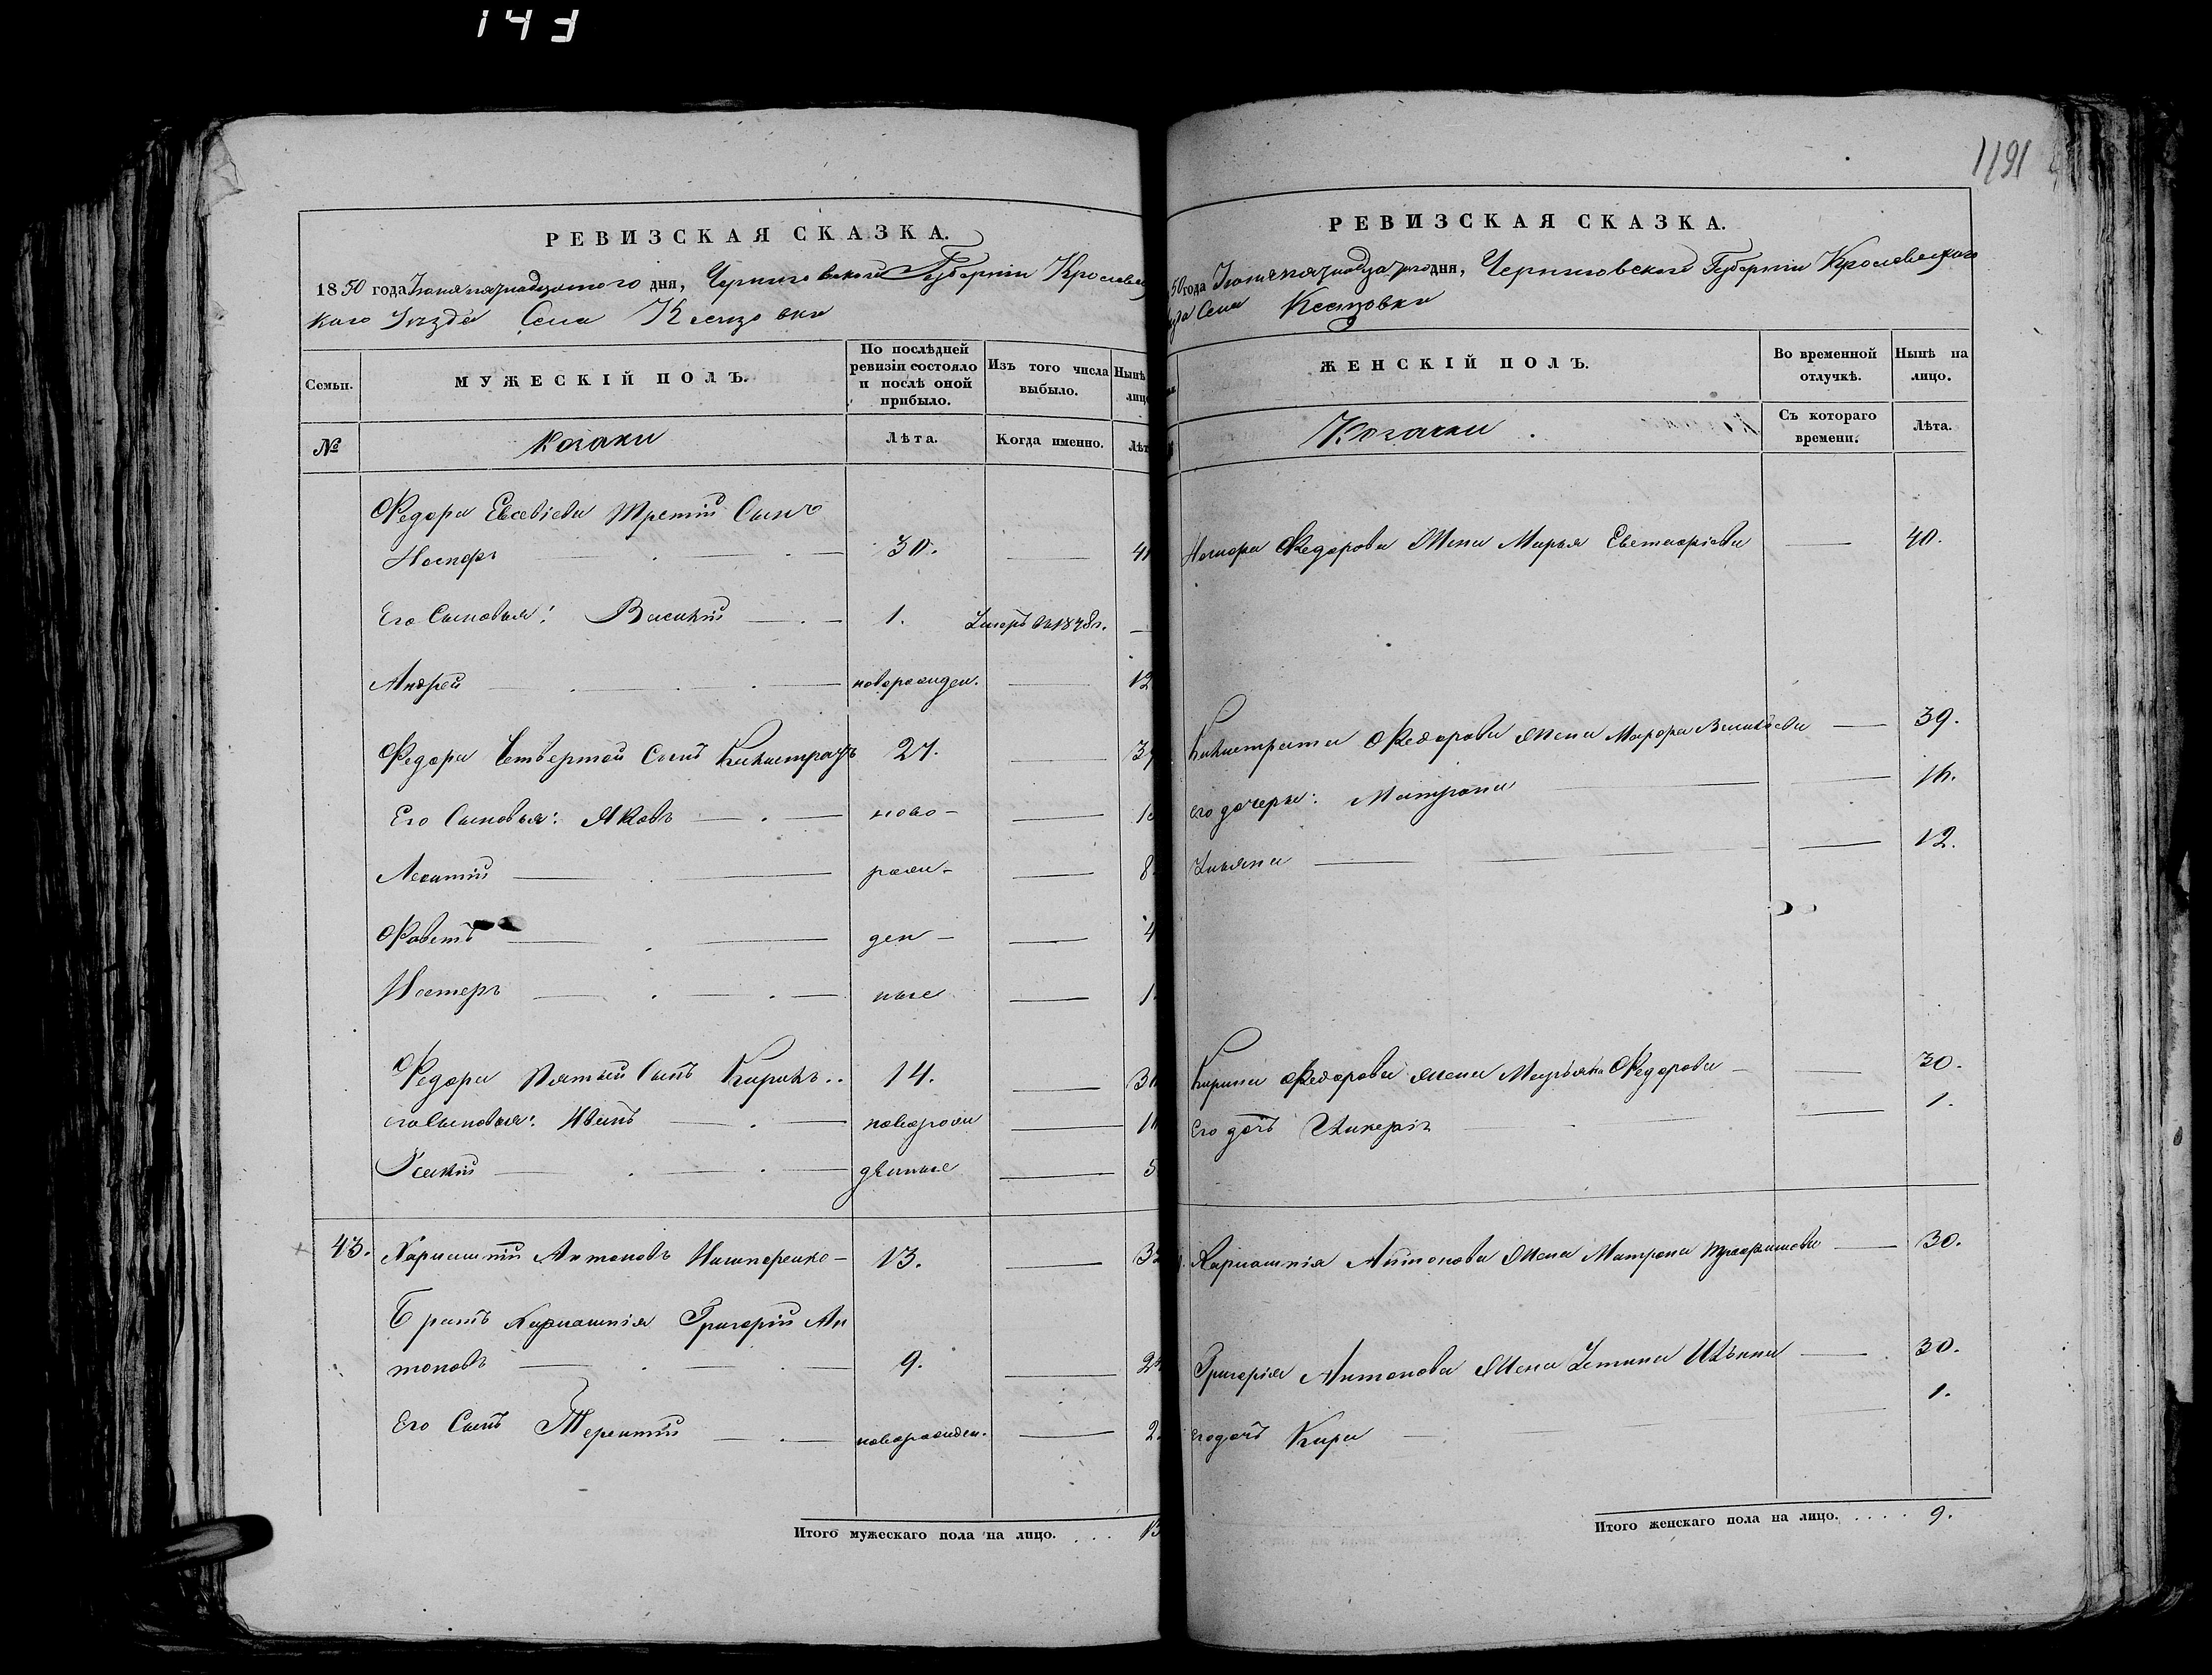 143
1191
РЕВИЗСКАЯ СКАЗКА.
1850 года Іюня пятнадцатого дня, Черниговской Губерніи Кролевец
кого Уѣзда Села
МУЖЕСКІЙ ПОЛЪ.
Семьи.
По послѣдней ревизіи состояло и послѣ оной прибыло.
Изъ того числа выбыло.
Нынѣ
лицо
№
Козаки
Лѣта.
Когда именно.
Лѣт
Федора Евсевіева Третій Сынъ
30. 4
Его Сыновья: Василій 1. Умеръ въ 1848 г.
Андрей новорожден. 12
Федора Четвертой Сынъ Калистратъ 27. 39
Его Сыновья: Яковъ ново-
Леонтій рожд- 8
ден- 4
Нестеръ ные 1
Федора Пятый Сынъ Кирилъ 14. 3
его Сыновья: Иванъ новорож 1
денные 5
43. Харлампій Антоновъ 13. 3
Братъ Харлампія Григорій Ан
тоновъ 9. 2
Его Сынъ Терентій новорожден. 2.
Итого мужескаго пола на лицо. . . . 13
РЕВИЗСКАЯ СКАЗКА.
50 года Іюня пятнадцатого дня, Черниговской Губерніи Кролевецкого
зда Села
ЖЕНСКІЙ ПОЛЪ.
Во временной отлучкѣ.
Нынѣ на лицо.
Козачки
Съ котораго времени.
Лѣта.
Федорова Жена Марья 40.
Калистрата Федорова Жена Марфа Васильева 39.
его дочери: Матрона 16.
Ульяна 12.
Кирила Федорова Жена Марьяна Федорова 30.
Его дочь Гликерія 1.
Харлампія Антонова Жена Матрона Трофимова 30.
Григорія Антонова Жена Устина Ильина 30.
Его дочь Кира 1.
Итого женскаго пола на лицо. . . . . 9.